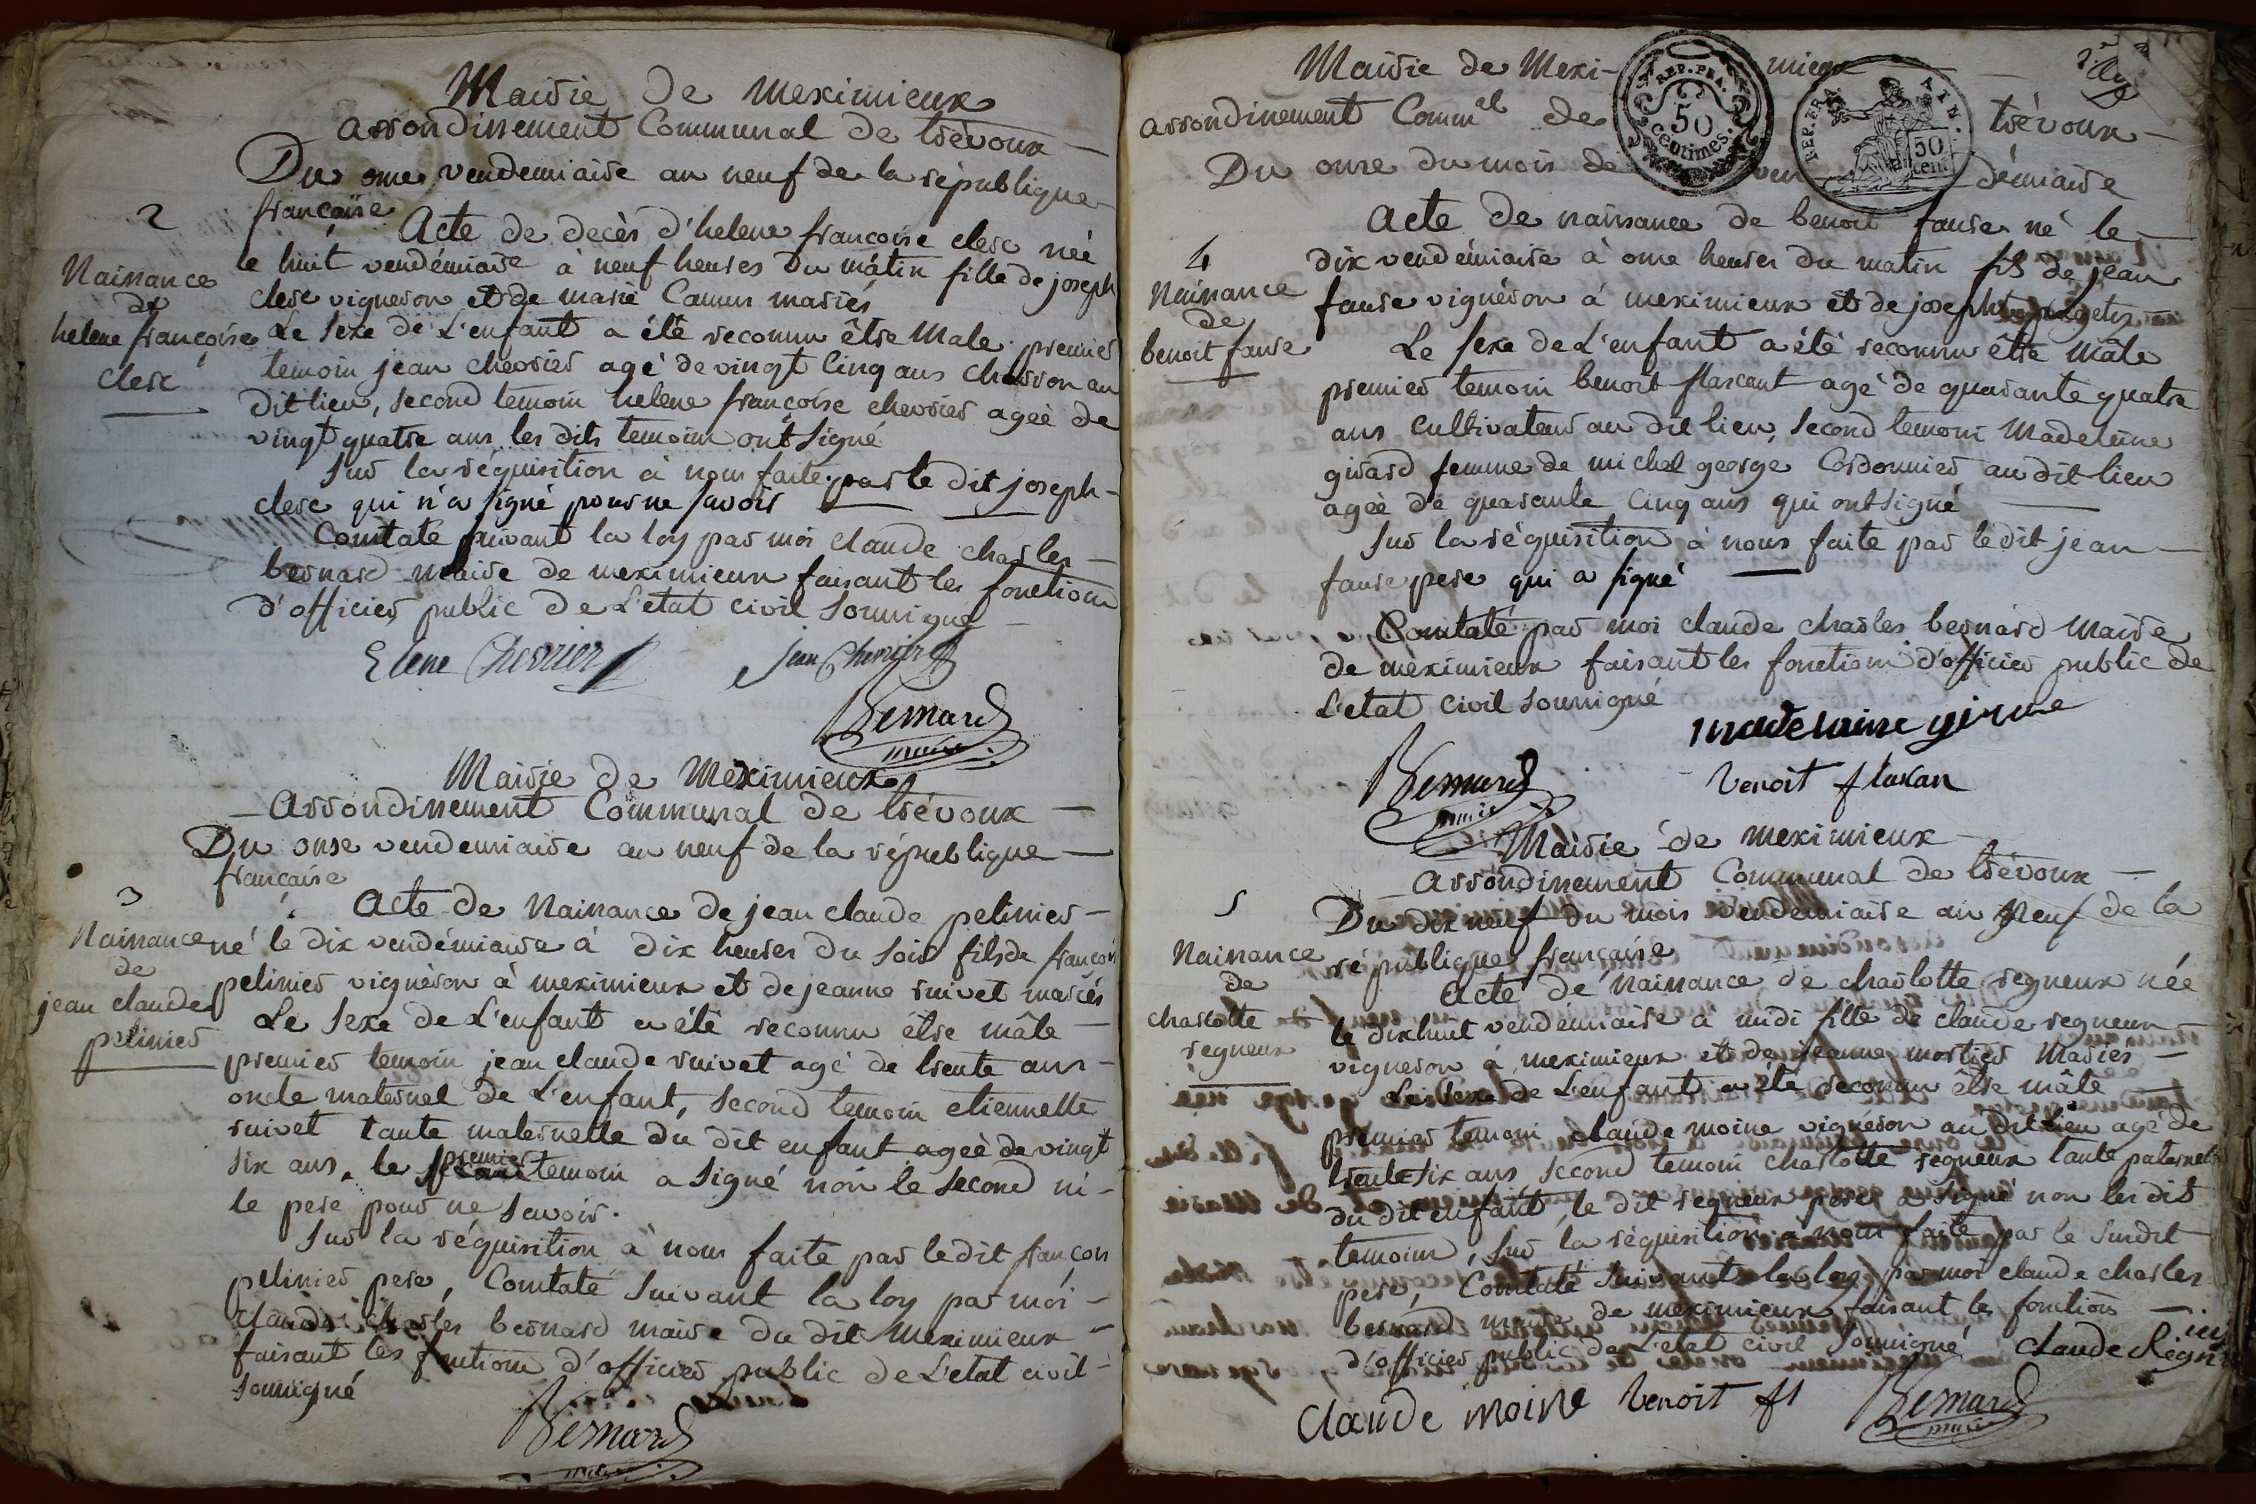 Mairie de meximieux
arrondissement Communal de trévoux
Du onze vendemiaire an neuf de la république
française
2
Naissance
de
helene françoise
clerc
Acte de decès d'helene françoise clerc née
le huit vendémiaire à neuf heures du matin fille de joseph
clerc vigneron et de marie Camus mariés
Le sexe de L'enfant a été reconnu être Male. premier
temoin jean chevrier agé de vingt Cinq ans charron au
dit lieu, second temoin helene françoise chevrier ageè de
vingt quatre ans les dits temoins ont signé
sur la réquisition à nous faite par le dit joseph
clerc qui n'a signé pour ne savoir
Constaté suivant la loy par moi claude charles
bernard maire de meximieux faisant les fonctions
d'officier public de L'etat civil soussigné
Elene Chevrier jean Chevrier
Bernard
maire
Mairie de Meximieux
arrondissement Communal de trévoux
Du onse vendemiaire an neuf de la république
française
3
Naissance
de
jean claude
pelinier
Acte de Naissance de jean claude pelinier
né le dix vendémiaire à dix heures du soir fils de françois
pelinier vignéron à meximieux et de jeanne ruivet mariés
Le sexe de L'enfant a été reconnu être mâle
premier temoin jean claude ruivet agé de trente ans
oncle maternel de L'enfant, second temoin etiennette
ruivet tante maternelle du dit enfant ageè de vingt
six ans. le premier temoin a signé non le second ni
le pere pour ne savoir.
sur la réquisition à nous faite par le dit françois
pelinier pere, Constaté suivant la loy par moi
claude charles bernard maire du dit Meximieux
faisant les fonctions d'officier public de L'etat civil
soussigné
Bernard
maire
Mairie de Meximieux
arrondissement Comm.el de trévoux
REP. FRA.
50
centimes.
REP. FRA.
50
cent
Du onze du mois de vendémiaire
4
Naissance
de
benoit faure
Acte de naissance de benoit faure né le
dix vendémiaire à onze heures du matin fils de jean
faure vignéron à meximieux et de josephte
Le sexe de L'enfant a été reconnu être Mâle
premier temoin benoit flascant agé de quarante quatre
ans Cultivateur au dit lieu, second temoin Madeleine
girard femme de michel george Cordonnier au dit lieu
ageè de quarante Cinq ans qui ont signé
sur la réquisition à nous faite par le dit jean
faure pere qui a signé
Constaté par moi claude charles bernard Maire
de meximieux faisant les fonctions d'officier public de
L'etat civil soussigné
madelaine
Bernard
maire
benoit flakan
Mairie de meximieux
arrondissement Communal de trévoux
5
Naissance
de
charlotte
regneux
Du dix neuf du mois vendemiaire an Neuf de la
république française
Acte de Naissance de charlotte regneux née
le dixhuit vendémiaire à midi fille de claude regneux
vigneron à meximieux et de jeanne mortier Mariés
Le sexe de L'enfant a été reconnu être mâle
premier temoin claude moine vignéron au dit lieu agé de
trente six ans second temoin charlotte regneux tante paternelle
du dit enfant, le dit regneux pere a signé non les dit
temoins, sur la réquisition à nous faite par le susdit
pere, Constaté suivant la loy par moi claude charles
bernard maire de meximieux faisant les fonctions
d'officier public de L'etat civil soussigné
claude
claude moine benoit fl
Bernard
maire